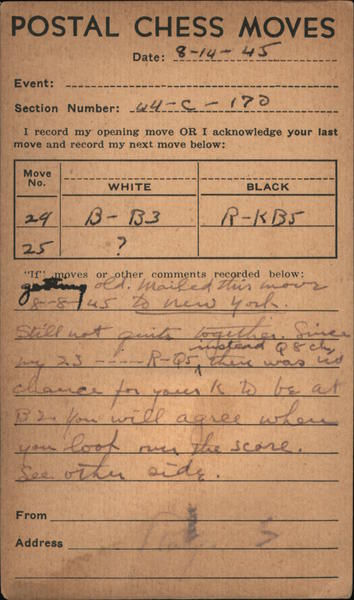 POSTAL CHESS MOVES
Date: 8-14-45
Event:
Section Number: 44-C-170
I record my opening move OR I acknowledge your last
move and record my next move below:
Move No. WHITE BLACK
24 B-B3 R-KB5
25 ?
"If" moves or other comments recorded below:
getting old. Mailed this move
8-8-45 to New York.
Still not quite together. Since
my 23 ---- R-Q5 instead Q8 ch, there was no
chance for your K to be at
B2. You will agree when
you look over the score.
See other side.
From
Address